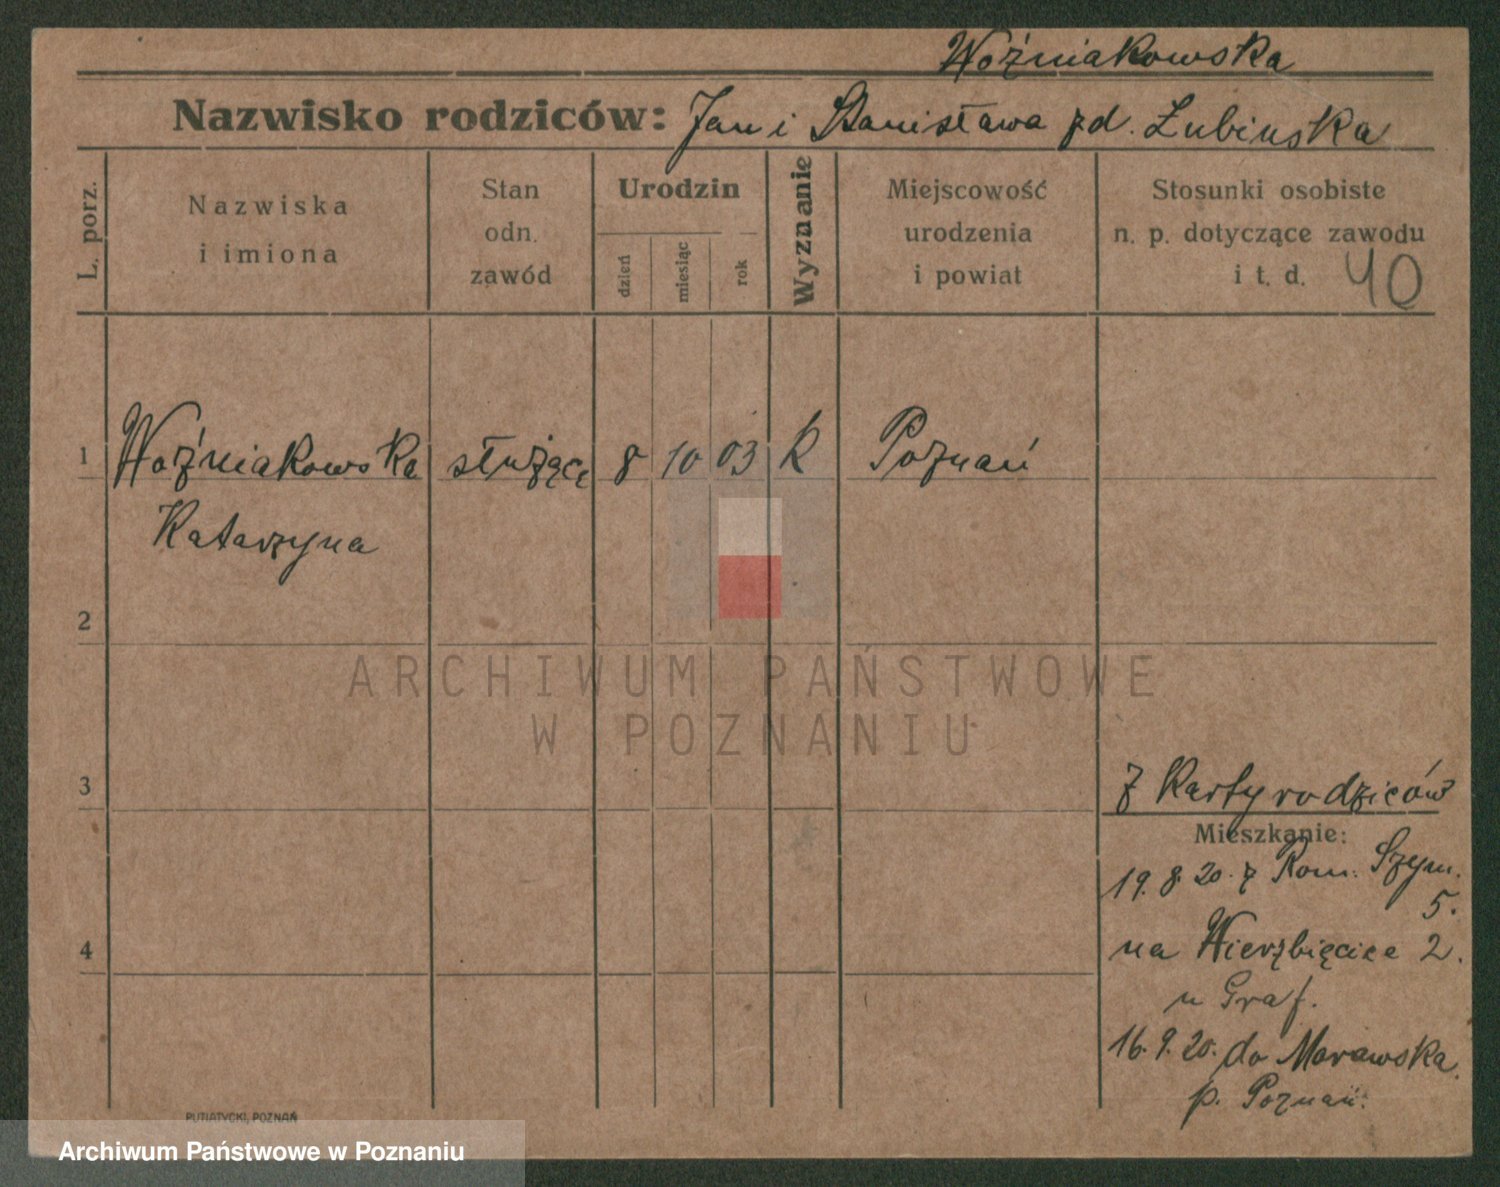 Woźniakowska
Nazwisko rodziców: Jan i Stanisława zd. Łubinska
L. porz.
Nazwiska
i imiona
Stan
odn.
zawód
Urodzin
dzień
miesiąc
rok
Wyznanie
Miejscowość
urodzenia
i powiat
Stosunki osobiste
n. p. dotyczące zawodu
i t. d. 40
1 Woźniakowska służącę 8 10 03 K Poznań
Katarzyna
2
ARCHIWUM PAŃSTWOWE
W POZNANIU
3
z Karty rodziców
Mieszkanie:
19. 8. 20. z Rom. Szym.
5.
4
na Wierzbięcice 2.
u Graf.
16. 9. 20. do Morawska.
p. Poznań.
PUTIATYCKI, POZNAŃ
Archiwum Państwowe w Poznaniu